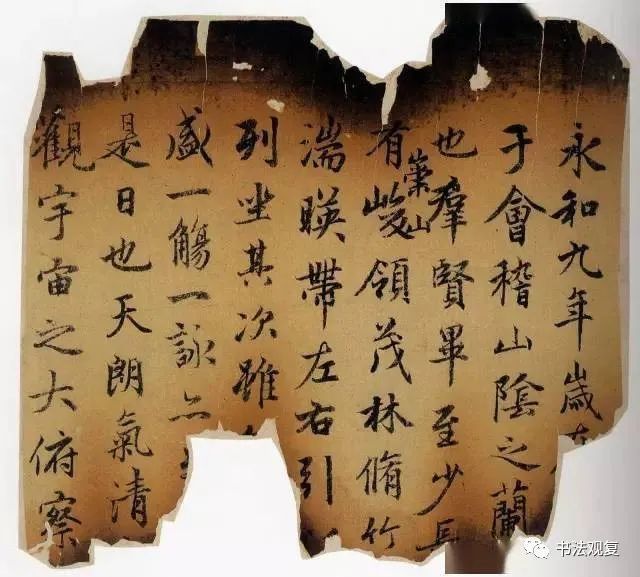 永和九年歲在
于會稽山陰之蘭
也羣賢畢至少長
有崇山峻領茂林脩竹
湍暎帶左右引
列坐其次雖
盛一觴一詠亦
是日也天朗氣清
觀宇宙之大俯察
书法观复